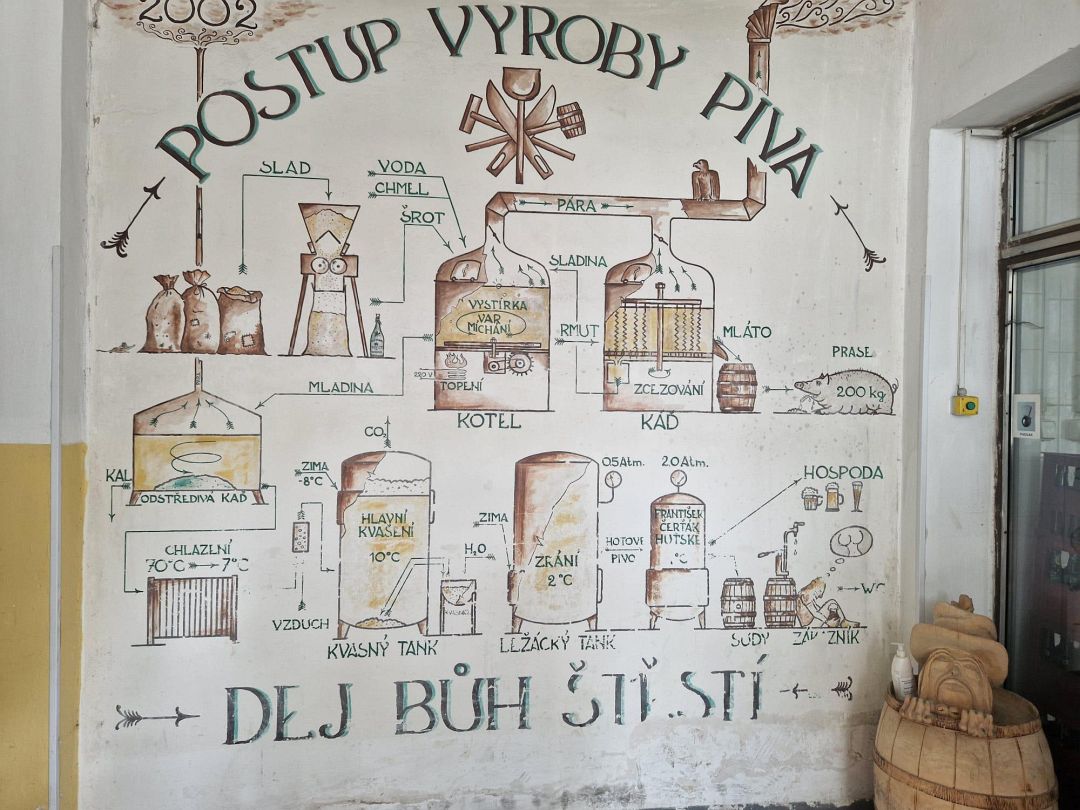 2002
POSTUP VYROBY PIVA
SLAD
VODA
CHMEL
ŠROT
PÁRA
SLADINA
RMUT
VYSTÍRKA
VAR
MÍCHÁNÍ
220 V
TOPENÍ
KOTEL
ZCEZOVÁNÍ
KÁĎ
MLÁTO
PRASE
200 kg
MLADINA
KAL
ODSTŘEDIVÁ KAĎ
CHLAZENÍ
70°C 7°C
CO2
ZIMA
-8°C
HLAVNÍ
KVAŠENÍ
10°C
VZDUCH
KVASNÝ TANK
H2O
ZIMA
ZRÁNÍ
2°C
LEŽÁCKÝ TANK
0.5 Atm.
2.0 Atm.
HOTOVÉ
PIVO
FRANTIŠEK
ČERŤÁK
HUTSKÉ
°C
HOSPODA
WC
SUDY
ZÁK ZNÍK
DEJ BŮH ŠTĚSTÍ